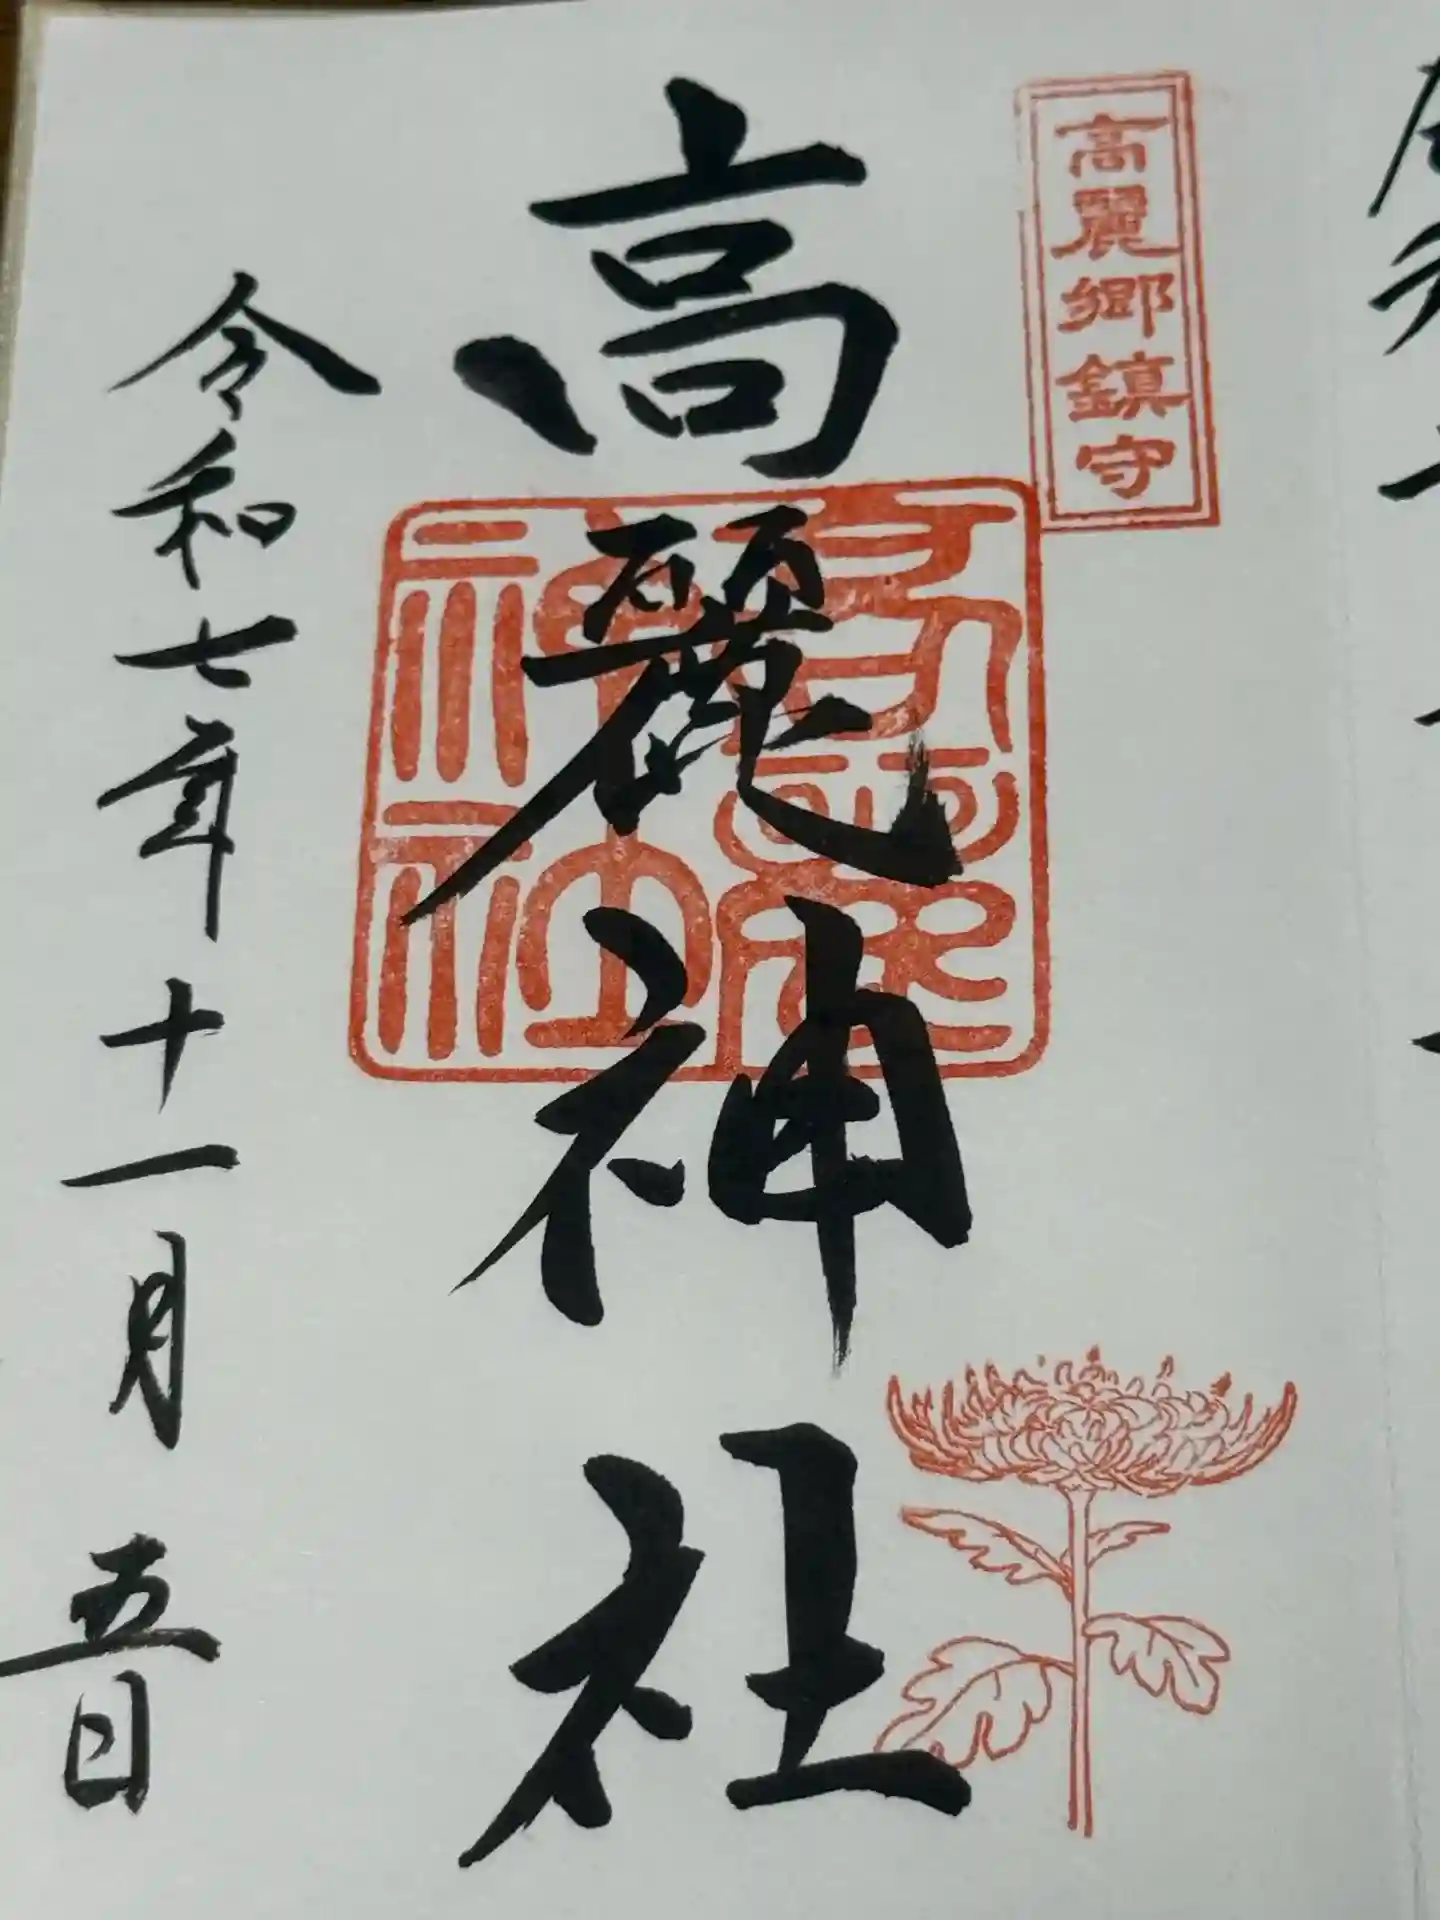 高麗郷鎮守
高麗神社
高麗神社
令和七年十一月五日